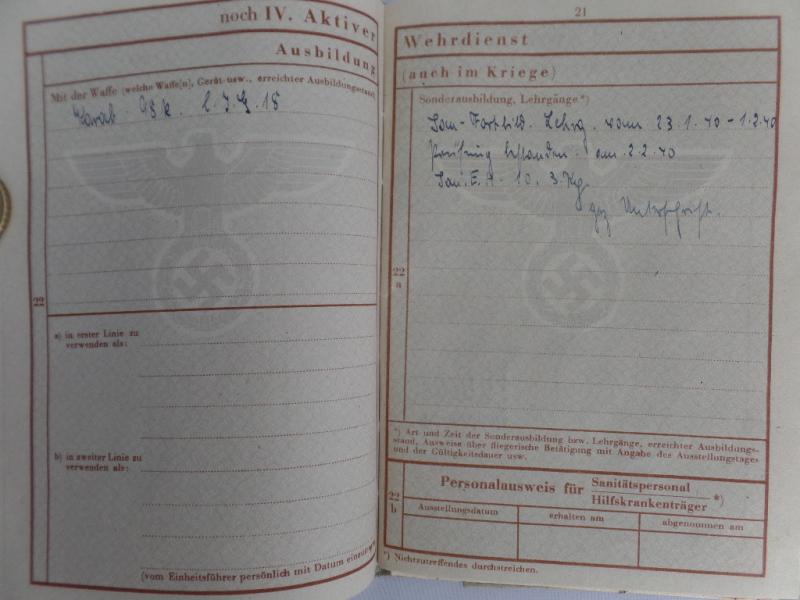 noch IV. Aktiver
Ausbildung
Mit der Waffe (welche Waffe[n], Gerät usw., erreichter Ausbildungsstand)
Karab. 98k. l. J. G. 18
22
a) in erster Linie zu
verwenden als:
b) in zweiter Linie zu
verwenden als:
(vom Einheitsführer persönlich mit Datum einzutr
21
Wehrdienst
(auch im Kriege)
Sonderausbildung, Lehrgänge*)
San-Fortbild. Lehrg. vom 23.1.40-1.2.40
Prüfung bestanden. am 2.2.40
San. E. A. 10. 3. Kp.
gez Unterschrift.
22
a
*) Art und Zeit der Sonderausbildung bzw. Lehrgänge, erreichter Ausbildungs-
stand, Ausweise über fliegerische Betätigung mit Angabe des Ausstellungstages
und der Gültigkeitsdauer usw.
22
b
Personalausweis für Sanitätspersonal
Hilfskrankenträger *)
Ausstellungsdatum erhalten am abgenommen am
*) Nichtzutreffendes durchstreichen.